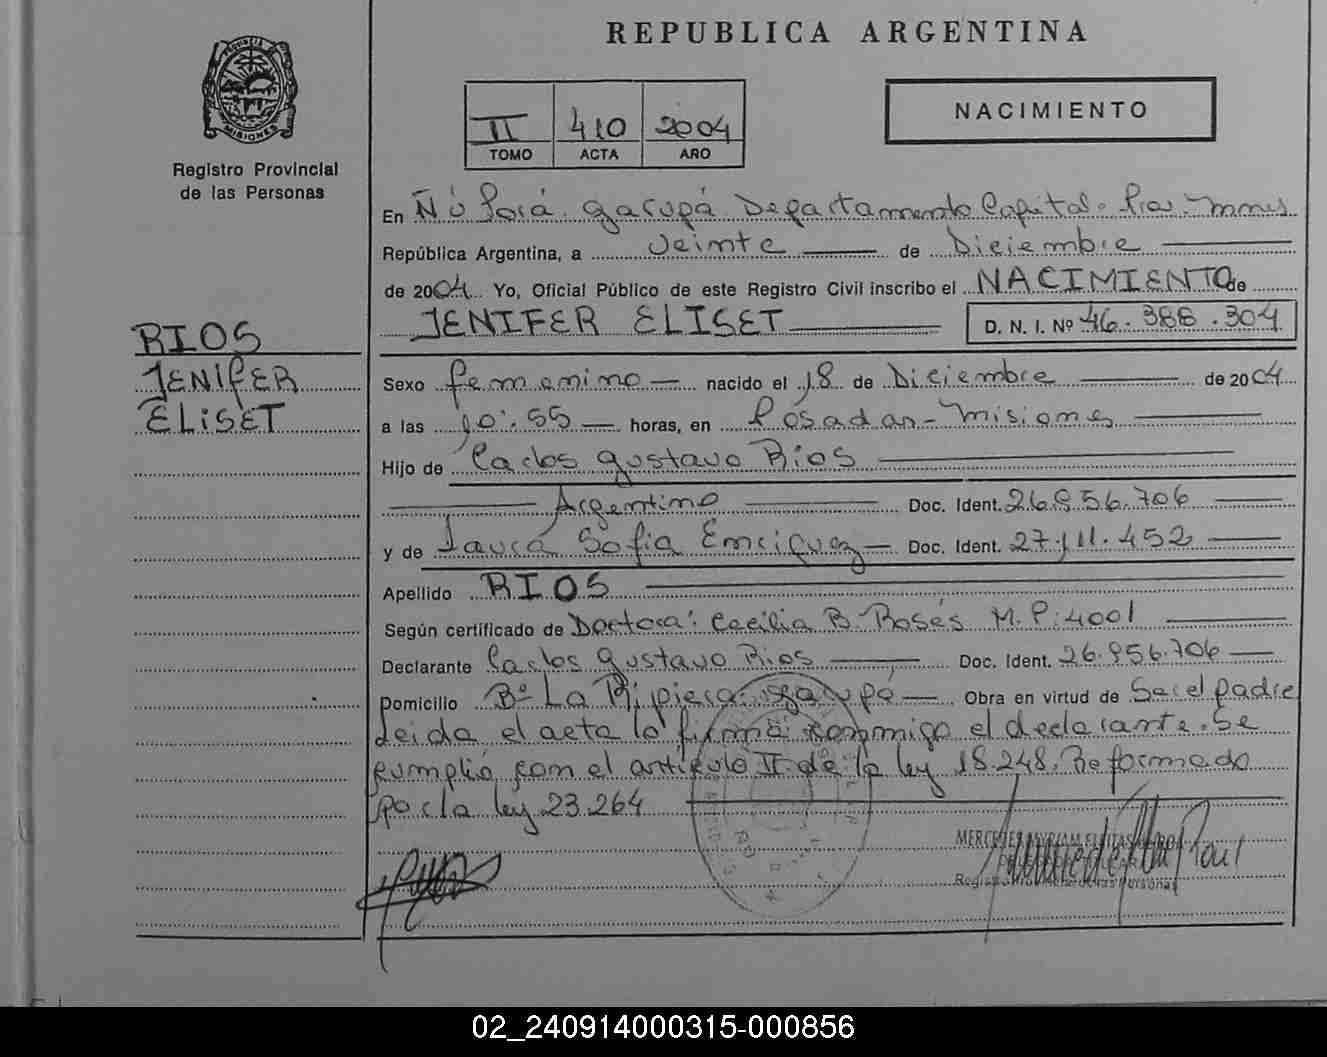 REPUBLICA ARGENTINA
PROVINCIA DE
MISIONES
Registro Provincial
de las Personas
NACIMIENTO
II 410 2004
TOMO ACTA AÑO
En Ñú Porá. Garupá. Departamento Capital. Pcia. Mnes
República Argentina, a veinte de Diciembre
de 2004 Yo, Oficial Público de este Registro Civil inscribo el NACIMIENTO de
JENIFER ELISET D. N. I. Nº 46.388.304
RIOS
JENIFER
ELISET
Sexo femenino nacido el 18 de Diciembre de 2004
a las 10:55 horas, en Posadas - Misiones
Hijo de Carlos Gustavo Rios
Argentino Doc. Ident. 26.956.706
y de Laura Sofia Enriquez Doc. Ident. 27.111.452
Apellido RIOS
Según certificado de Doctora: Cecilia B. Bosés M.P: 4001
Declarante Carlos Gustavo Rios Doc. Ident. 26.956.706
Domicilio Bº La Ripiera. Garupá Obra en virtud de Ser el padre
Leida el acta la firma conmigo el declarante. Se
cumplió con el artículo II de la ley 18.248. Reformado
por la ley 23.264
MERCEDES MYRIAM
Registro Provincial de las Personas
02_240914000315-000856